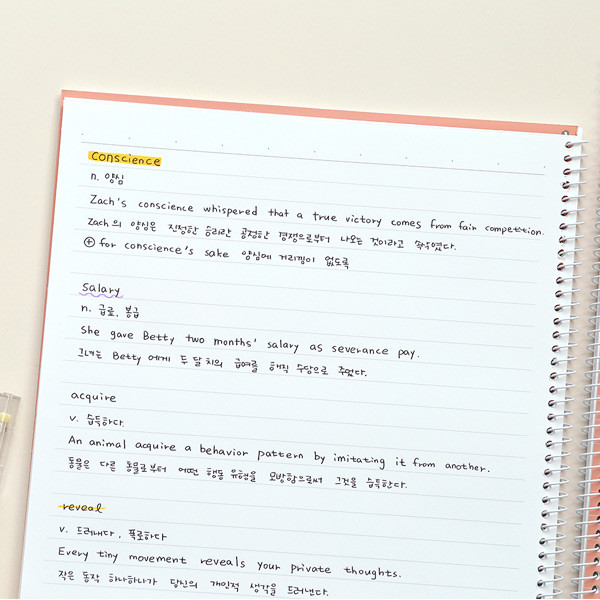 conscience
n. 양심
Zach's conscience whispered that a true victory comes from fair competition.
Zach의 양심은 진정한 승리란 공정한 경쟁으로부터 나오는 것이라고 속삭였다.
⊕ for conscience's sake 양심에 거리낌이 없도록
salary
n. 급료, 봉급
She gave Betty two months' salary as severance pay.
그녀는 Betty에게 두 달 치의 급여를 해직 수당으로 주었다.
acquire
v. 습득하다.
An animal acquire a behavior pattern by imitating it from another.
동물은 다른 동물로부터 어떤 행동 유형을 모방함으로써 그것을 습득한다.
reveal
v. 드러내다, 폭로하다
Every tiny movement reveals your private thoughts.
작은 동작 하나하나가 당신의 개인적 생각을 드러낸다.